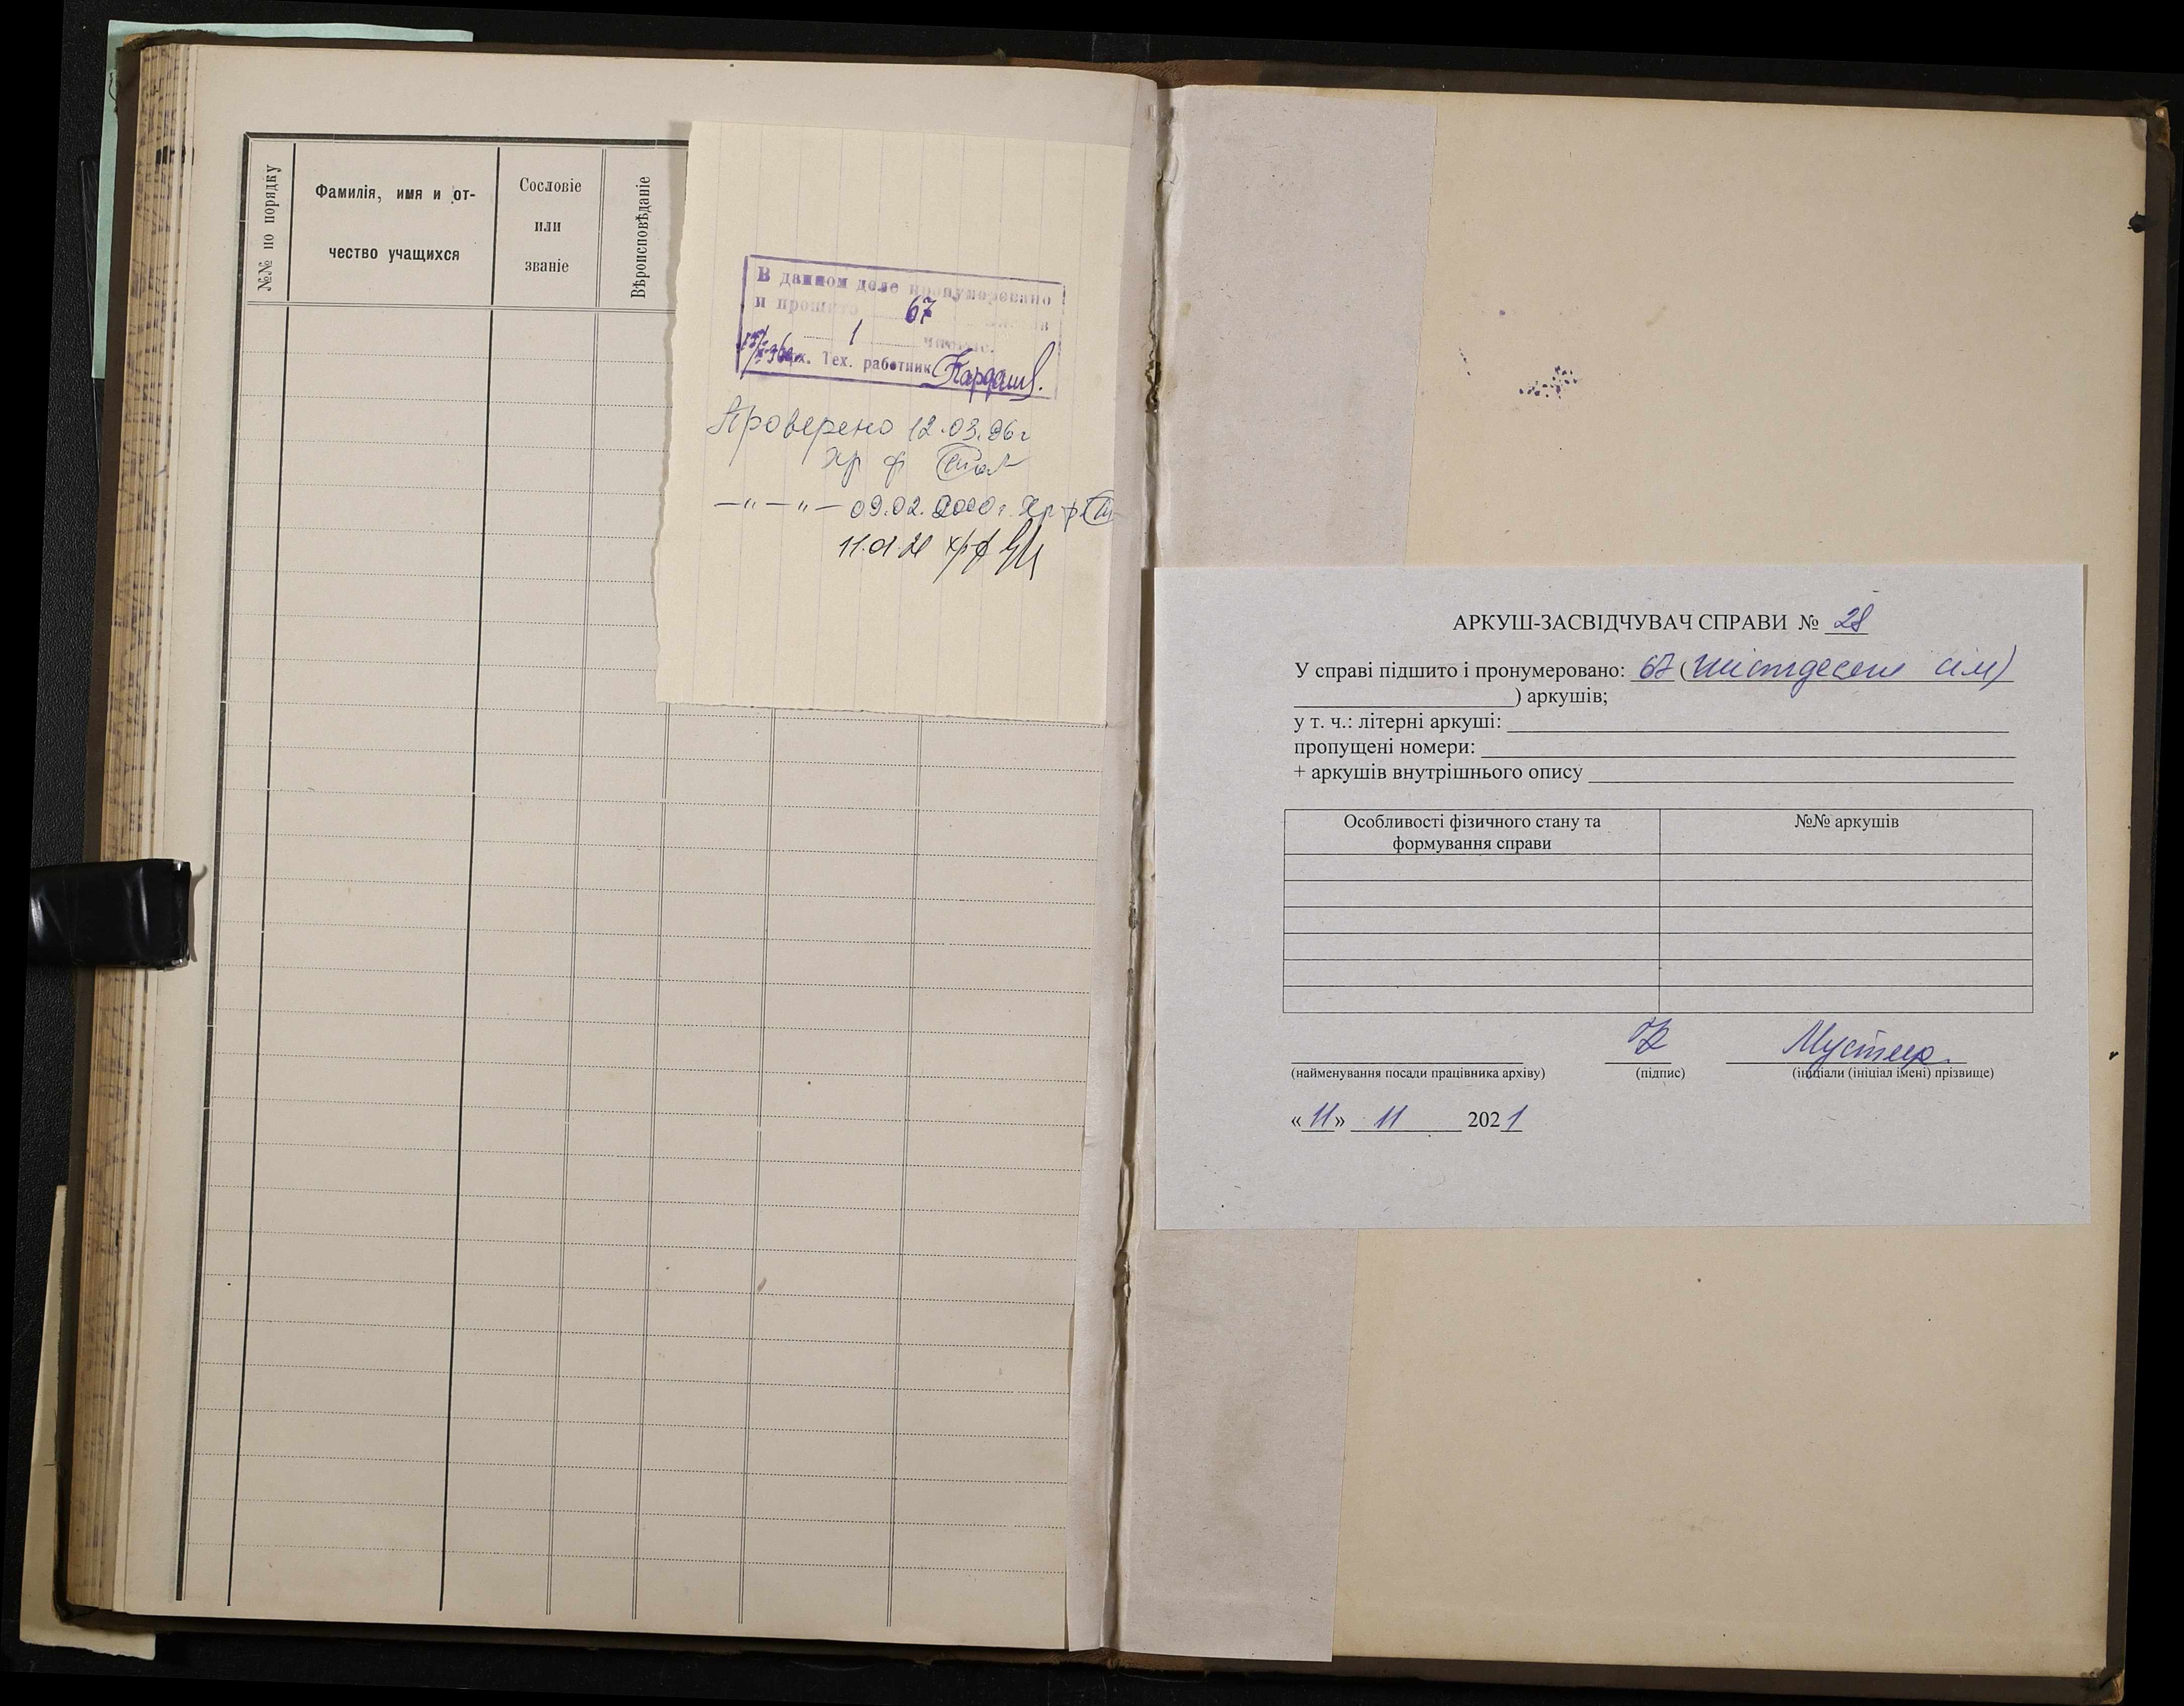 №№ по порядку
Фамилія, имя и от-
чество учащихся
Сословіе
или
званіе
Вѣроисповѣданіе
В данном деле пронумеровано
и прошито 67
1
Тех. работник Кардаш
Проверено 12.03.96г
хр ф
—"—"— 09.02.2000г. Хр ф
11.01.21 хр ф
АРКУШ-ЗАСВІДЧУВАЧ СПРАВИ № 28
У справі підшито і пронумеровано: 67 (шістдесят сім)
) аркушів;
у т. ч.: літерні аркуші:
пропущені номери:
+ аркушів внутрішнього опису
Особливості фізичного стану та
формування справи
№№ аркушів
(найменування посади працівника архіву)
(підпис)
(ініціали (ініціал імені) прізвище)
«11» 11 2021